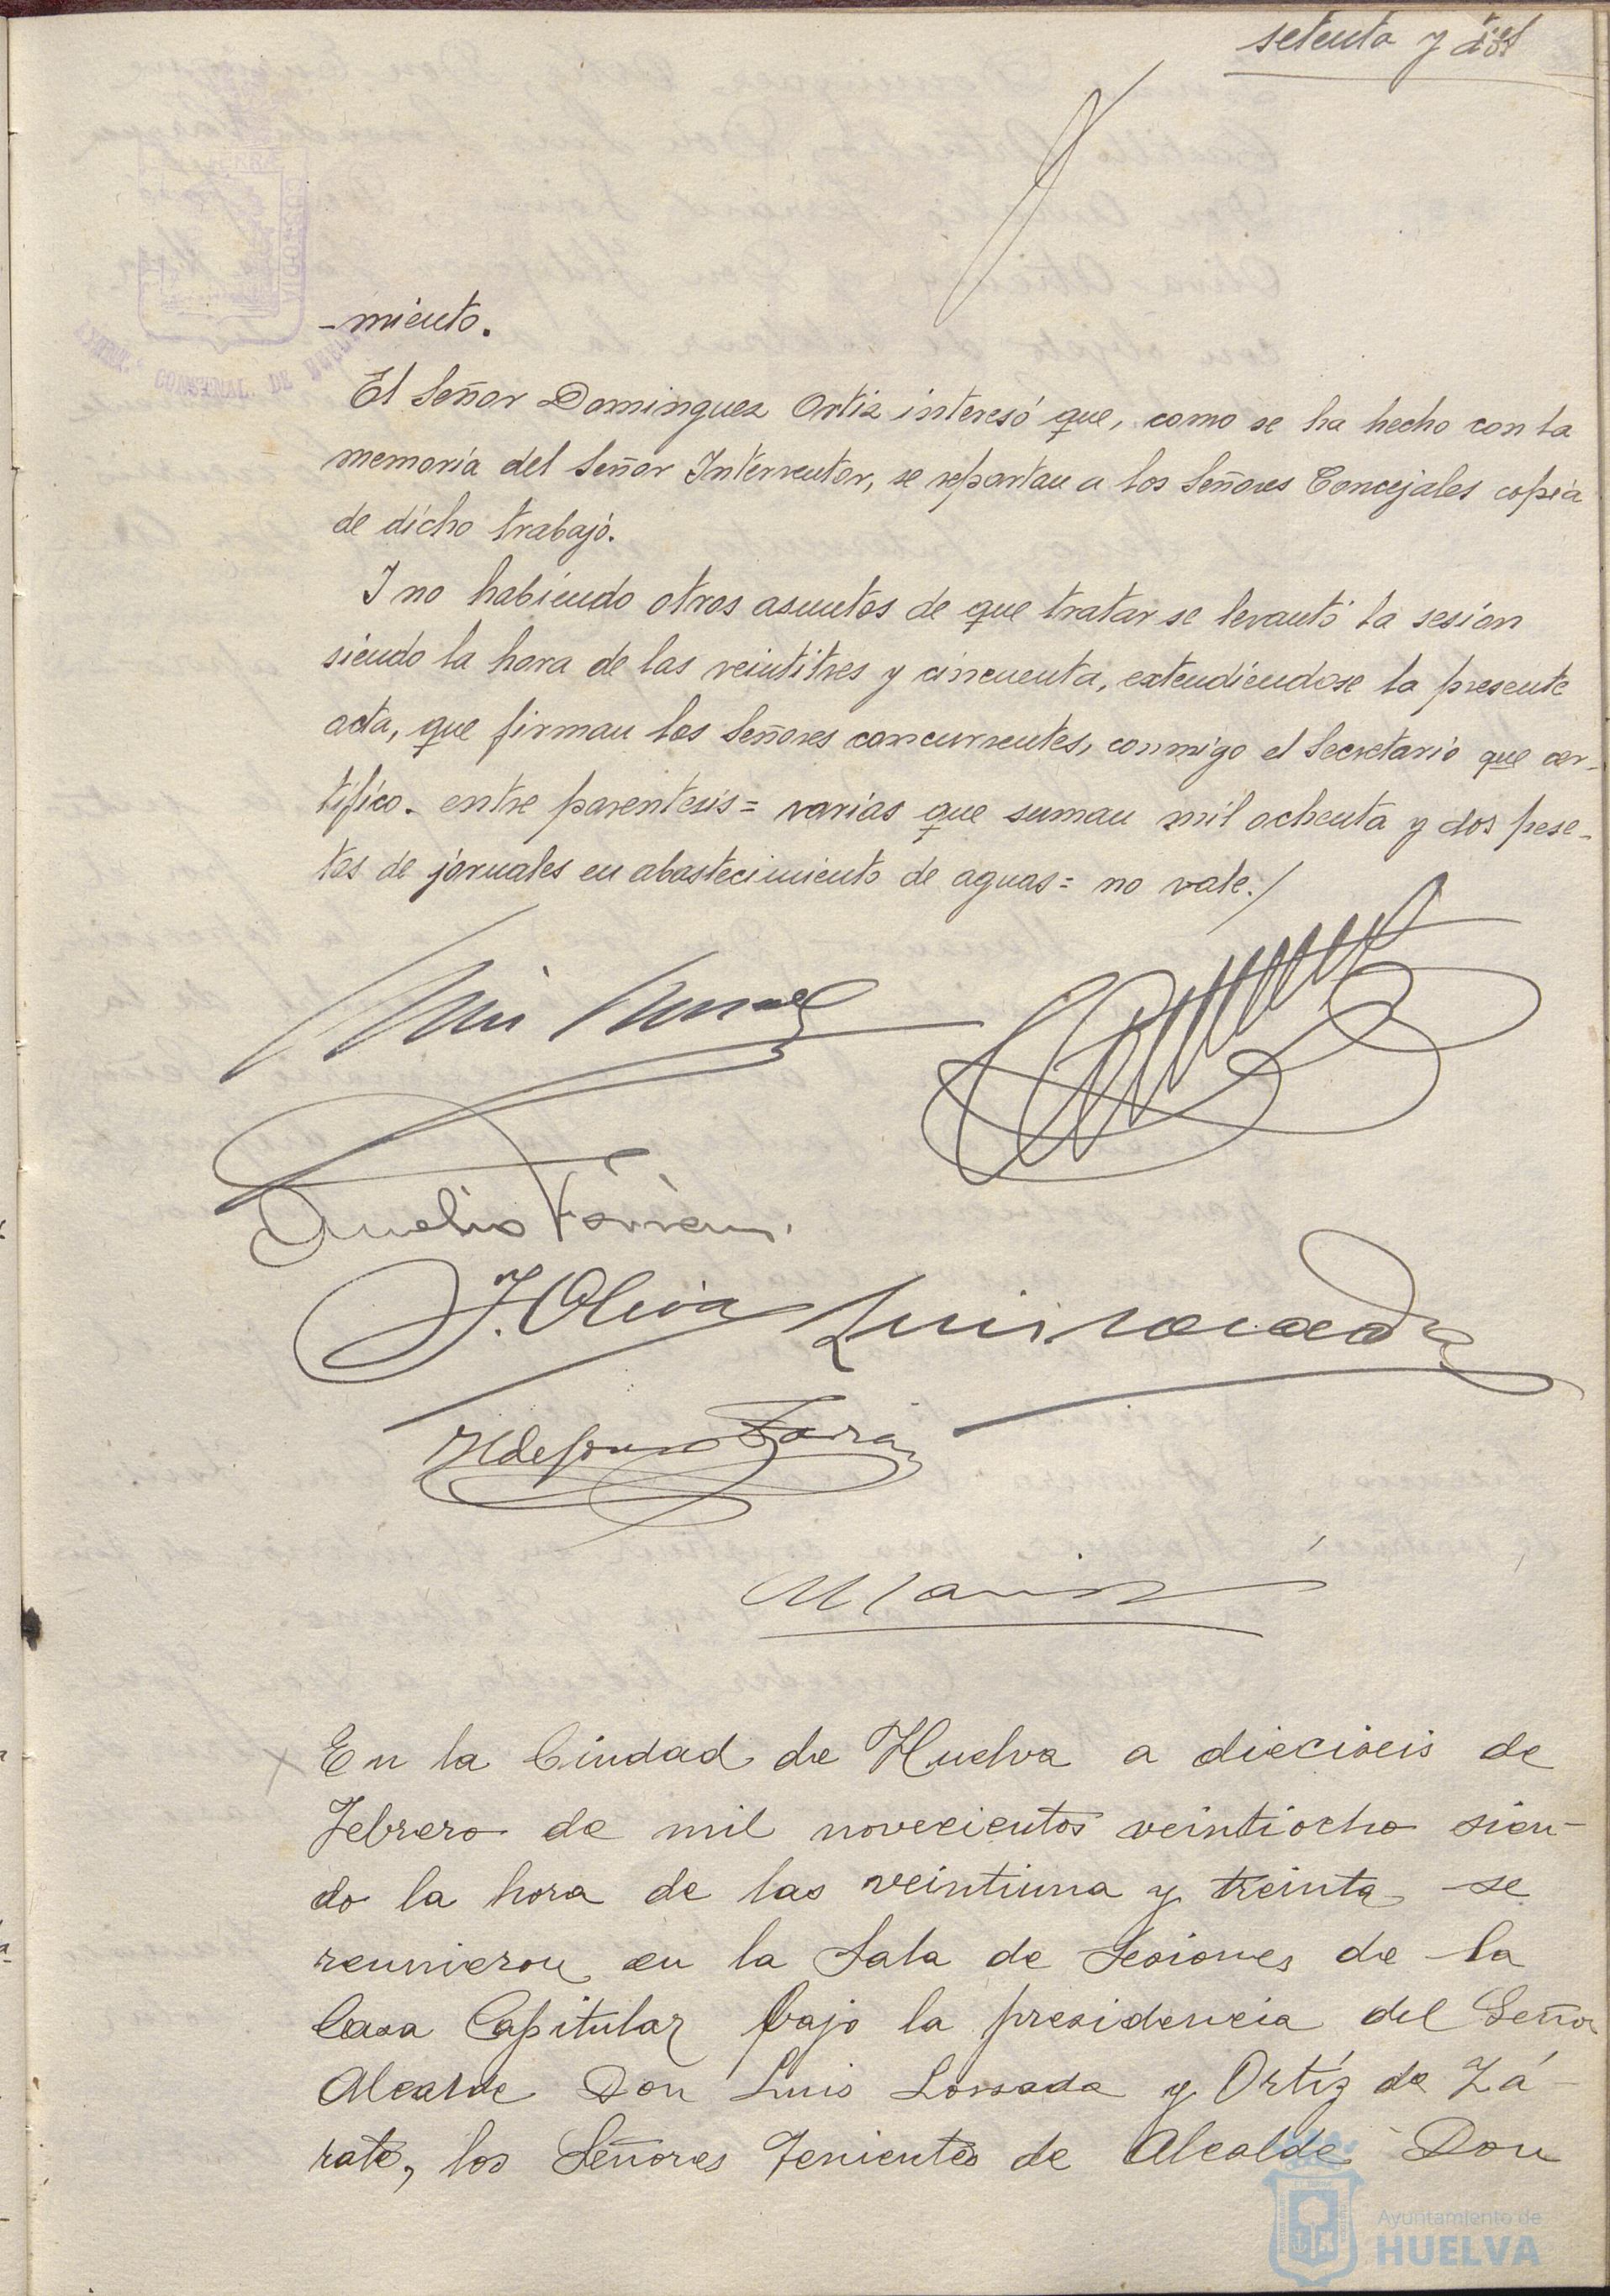 setenta y
-miento.
El Señor Dominguez Ortiz interesó que, como se ha hecho con la
memoria del Señor Interventor, se repartan a los Señores Concejales copia
de dicho trabajo.
Y no habiendo otros asuntos de que tratar se levantó la sesión
siendo la hora de las veintitres y cincuenta, extendiéndose la presente
acta, que firman los Señores concurrentes, conmigo el Secretario que cer-
tifico. entre parentesis= varias que suman mil ochenta y dos pese-
tas de jornales en abastecimiento de aguas= no vale./
Aurelio
J. Oliva Luis
Ildefonso
En la Ciudad de Huelva a dieciseis de
Febrero de mil novecientos veintiocho sien-
do la hora de las veintiuna y treinta se
reunieron en la Sala de Sesiones de la
Casa Capitular bajo la presidencia del Señor
Alcalde Don Luis Lossada y Ortíz de Zá-
rate, los Señores Tenientes de Alcalde Don
Ayuntamiento de
HUELVA